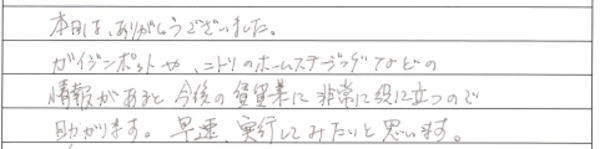 本日は、ありがとうございました。
ガイジンポットや、ニトリのホームステージングなどの
情報があると今後の賃貸業に非常に役に立つので
助かります。早速、実行してみたいと思います。